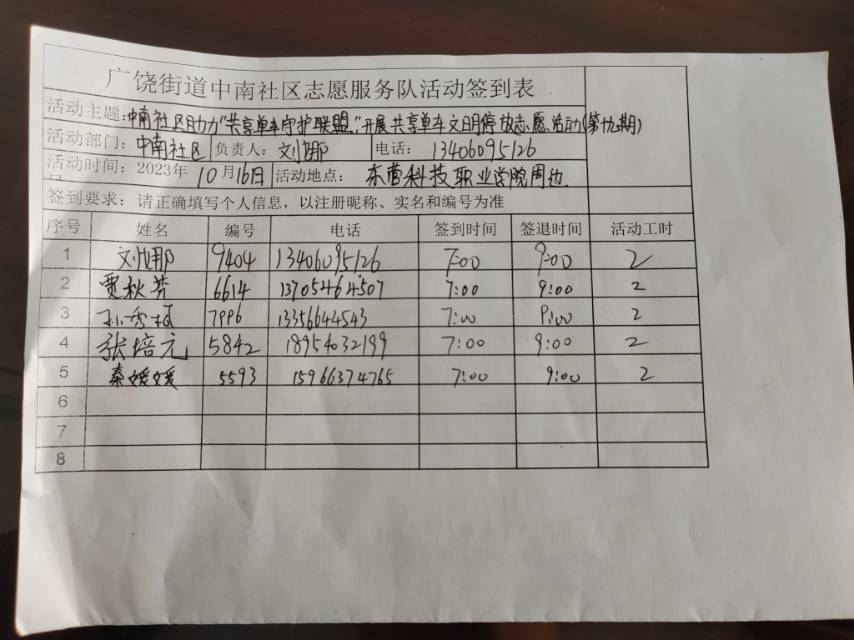 广饶街道中南社区志愿服务队活动签到表
活动主题:中南社区助力“共享单车守护联盟”,开展共享单车文明停放志愿活动(第九期)
活动部门:中南社区 负责人:刘娜 电话: 13406095126
活动时间:2023年10月16日 活动地点: 东营科技职业学院周边
签到要求:请正确填写个人信息,以注册昵称、实名和编号为准
序号 姓名 编号 电话 签到时间 签退时间 活动工时
1 刘娜 9404 13406095126 7:00 9:00 2
2 贾秋芳 6614 13705464507 7:00 9:00 2
3 7996 13356644543 7:00 9:00 2
4 张培元 5842 18954032199 7:00 9:00 2
5 秦媛媛 5593 15966374765 7:00 9:00 2
6
7
8